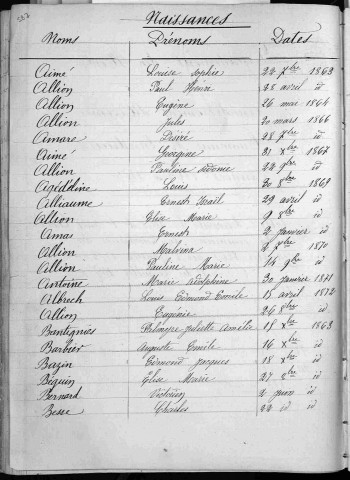 Naissances
Noms Prénoms Dates
Aimé Louise Sophie 22 7bre 1863
Allion Paul Henri 28 avril id
Allion Eugène 26 mai 1864
Allion Jules 20 mars 1866
Amare Désiré 28 7bre id
Aimé Georgine 21 Xbre 1867
Allion Pauline Sidonie 22 9bre id
Louis 30 8bre 1869
Alliaume Ernest 29 avril id
Allion Elise Marie 9 8bre id
Amas Ernest 2 janvier id
Allion Malvina 1870
Allion Pauline Marie 14 9bre id
Antoine Marie Adolphine 30 janvier 1871
Albrech Louis Edmond Emile 15 avril 1872
Allion Eugénie 26 8bre id
Bantegnos Philmyre Juliette Amélie 18 Xbre 1863
Barbier Auguste Emile 16 Xbre id
Bazin Edmond Jacques 18 Xbre id
Béguin Elise Marie 27 id
Bernard 2 juin id
Besse Charles 22 id id